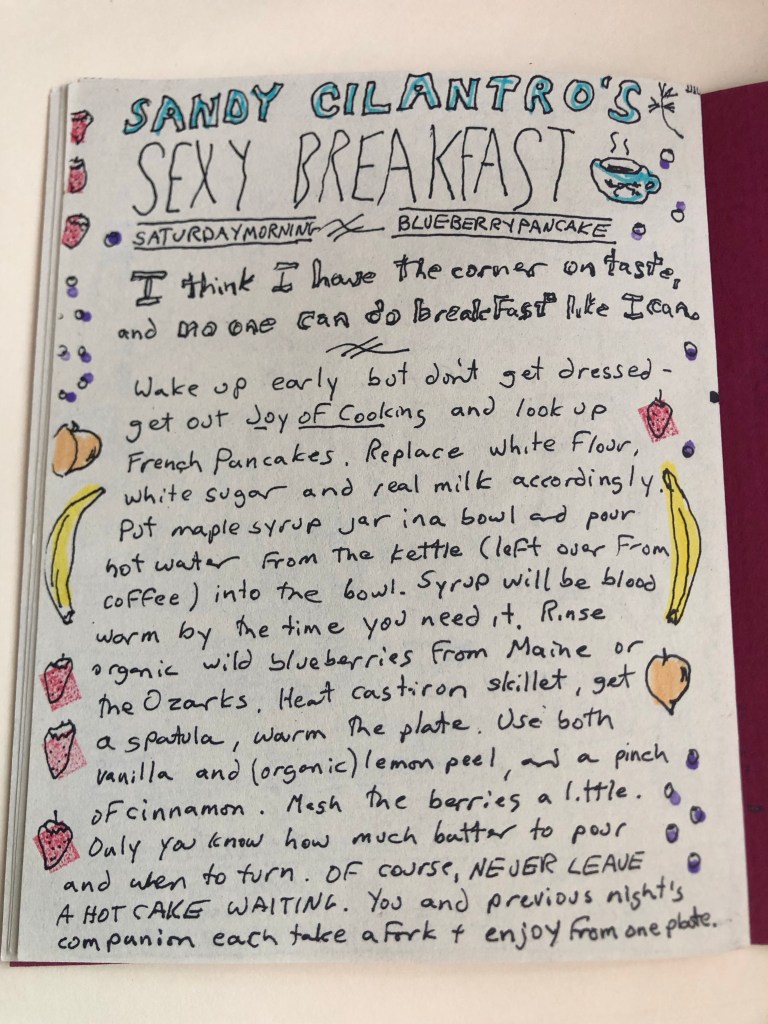 SANDY CILANTRO'S
SEXY BREAKFAST
SATURDAY MORNING BLUEBERRY PANCAKE
I think I have the corner on taste,
and no one can do breakfast like I can.
Wake up early but don't get dressed -
get out Joy of Cooking and look up
French Pancakes. Replace white flour,
white sugar and real milk accordingly.
Put maple syrup jar in a bowl and pour
hot water from the kettle (left over from
coffee) into the bowl. Syrup will be blood
warm by the time you need it. Rinse
organic wild blueberries from Maine or
the Ozarks. Heat castiron skillet, get
a spatula, warm the plate. Use both
vanilla and (organic) lemon peel, and a pinch
of cinnamon. Mash the berries a little.
Only you know how much batter to pour
and when to turn. Of course, NEVER LEAVE
A HOT CAKE WAITING. You and previous night's
companion each take a fork + enjoy from one plate.